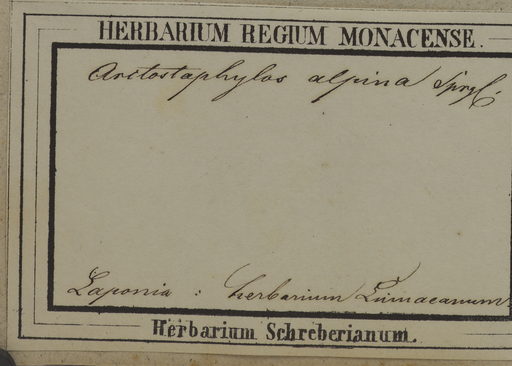 HERBARIUM REGIUM MONACENSE.
Arctostaphylos alpina Sprgl.
Laponia : herbarium Linnaeanum
Herbarium Schreberianum.